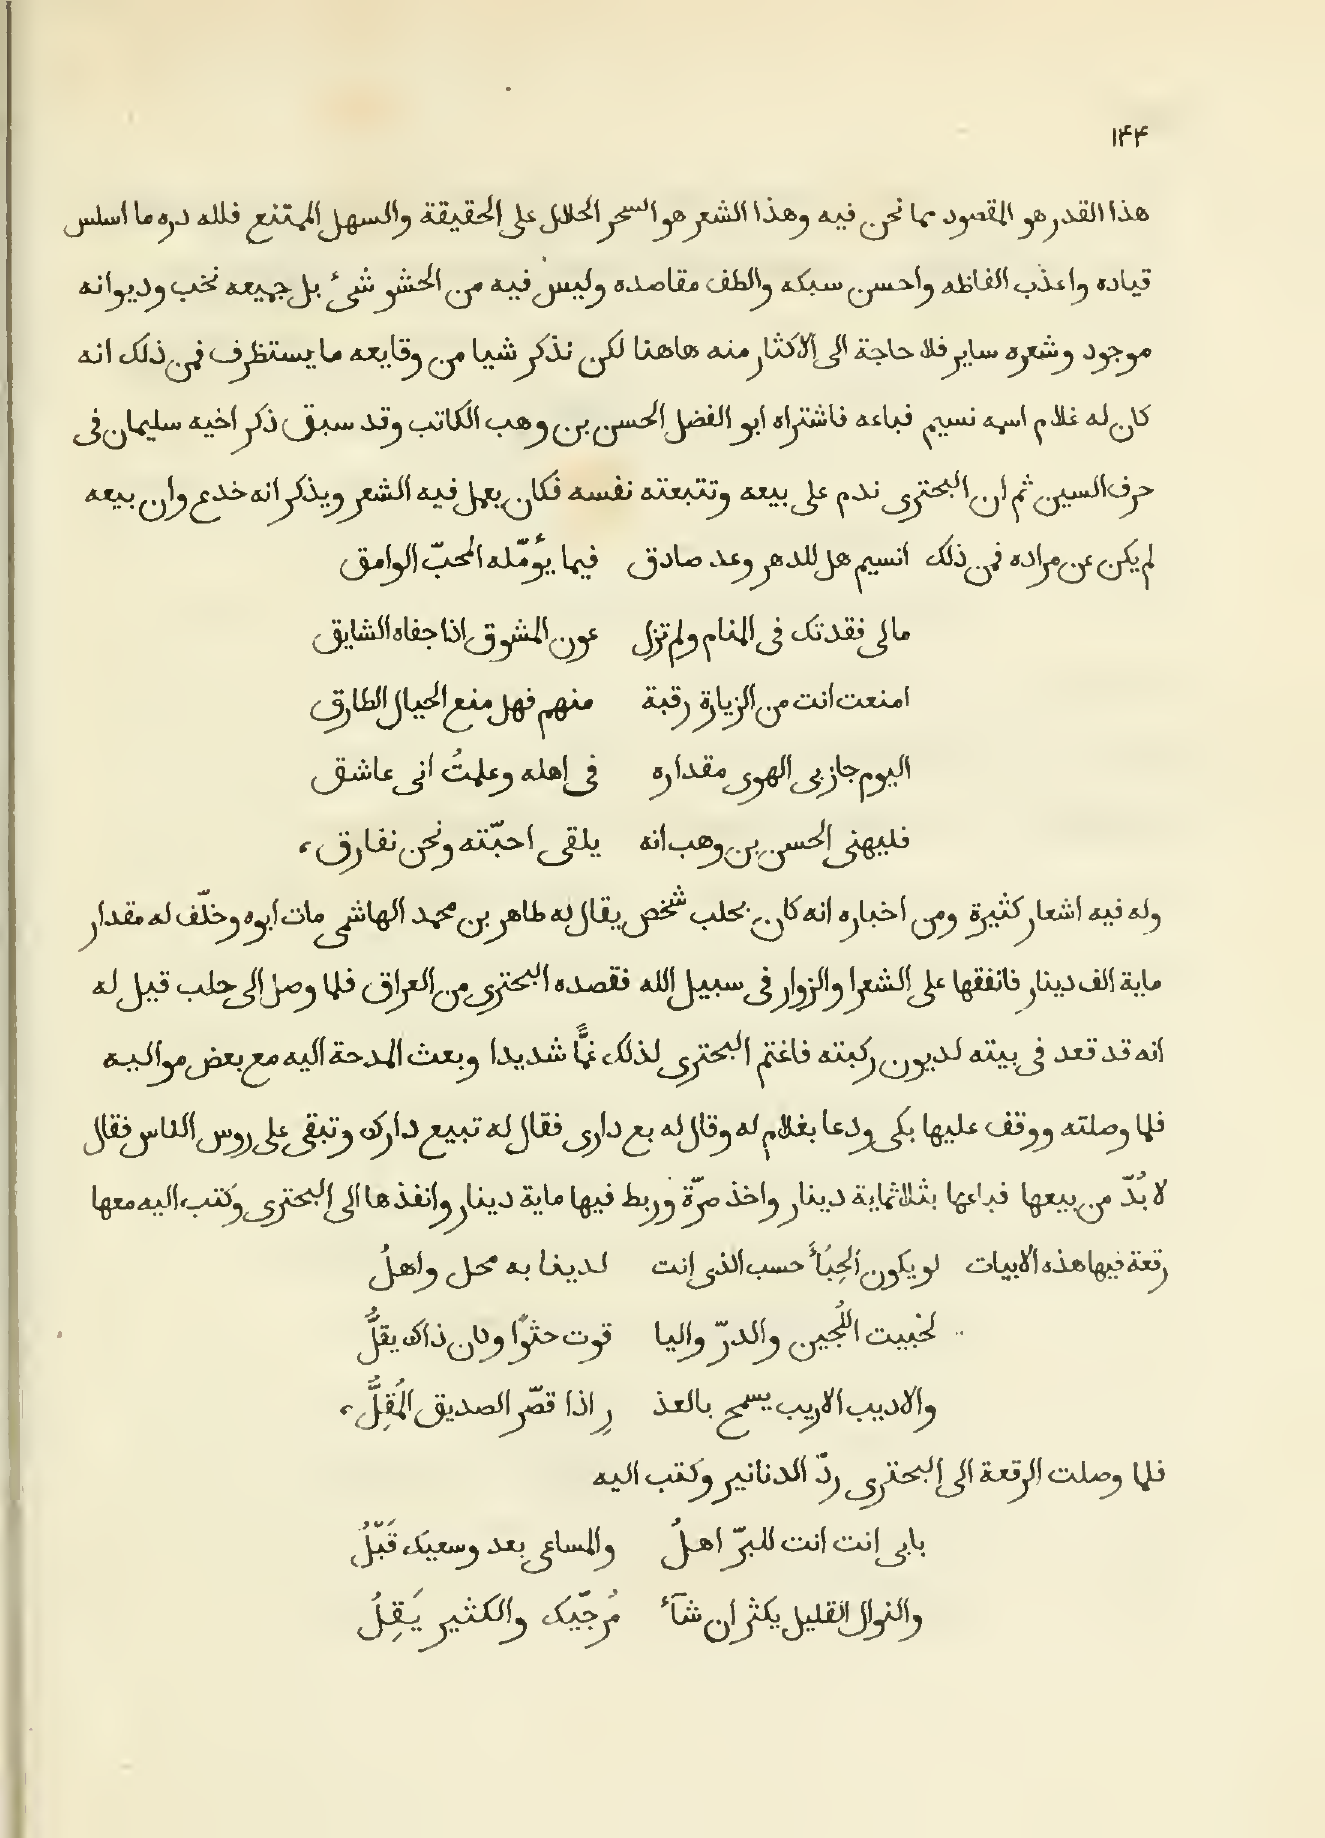 ١٤٤
هذا القدر هو المقصود مما نحن فيه وهذا الشعر هو السحر الحلال على الحقيقة والسهل الممتنع فلله دره ما اسلس
قياده واعذب الفاظه واحسن سبكه والطف مقاصده وليس فيه من الحشو شىء بل جميعه نخب وديوانه
موجود وشعره ساير فلا حاجة الى الاكثار منه هاهنا لكن نذكر شيا من وقايعه ما يستظرف فمن ذلك انه
كان له غلام اسمه نسيم فباعه فاشتراه ابو الفضل الحسن بن وهب الكاتب وقد سبق ذكر اخيه سليمان فى
حرف السين ثم ان البحترى ندم على بيعه وتتبعته نفسه فكان يعمل فيه الشعر ويذكر انه خدع وان بيعه
لم يكن عن مراده فمن ذلك انسيم هل للدهر وعد صادق فيما يؤمّله المحبّ الوامق
مالى فقدتك فى المنام ولم تزل عون المشوق اذا جفاه الشايق
امنعت انت من الزيارة رقبة منهم فهل منع الخيال الطارق
اليوم جاز بى الهوى مقداره فى اهله وعلمتُ انى عاشق
فليهنى الحسن بن وهب انه يلقى احبّته ونحن نفارق،
وله فيه اشعار كثيرة ومن اخباره انه كان بحلب شخص يقال له طاهر بن محمد الهاشمى مات ابوه وخلّف له مقدار
ماية الف دينار فانفقها على الشعرا والزوار فى سبيل الله فقصده البحترى من العراق فلما وصل الى حلب قيل له
انه قد قعد فى بيته لديون ركبته فاغتم البحترى لذلك غمًّا شديدا وبعث المدحة اليه مع بعض مواليه
فلما وصلته ووقف عليها بكى ودعا بغلام له وقال له بع دارى فقال له تبيع دارك وتبقى على روس الناس فقال
لا بُدّ من بيعها فباعها بثلاثماية دينار واخذ صرّة وربط فيها ماية دينار وانفذها الى البحترى وكتب اليه معها
رقعة فيها هذه الابيات لو يكون الحِبَاءُ حسب الذى انت لدينا به محل واهلُ
لحُبيت اللُجين والدرّ واليا قوت حثوًا وكان ذاك يقلُّ
والاديب الاريب يسمح بالعذ رِ اذا قصّر الصديق المُقِلُّ،
فلما وصلت الرقعة الى البحترى ردّ الدنانير وكتب اليه
بابى انت انت للبرّ اهلُ والمساعى بعد وسعيك قَبْلُ
والنوال القليل يكثر ان شآء مُرجّيك والكثير يَقِلُ